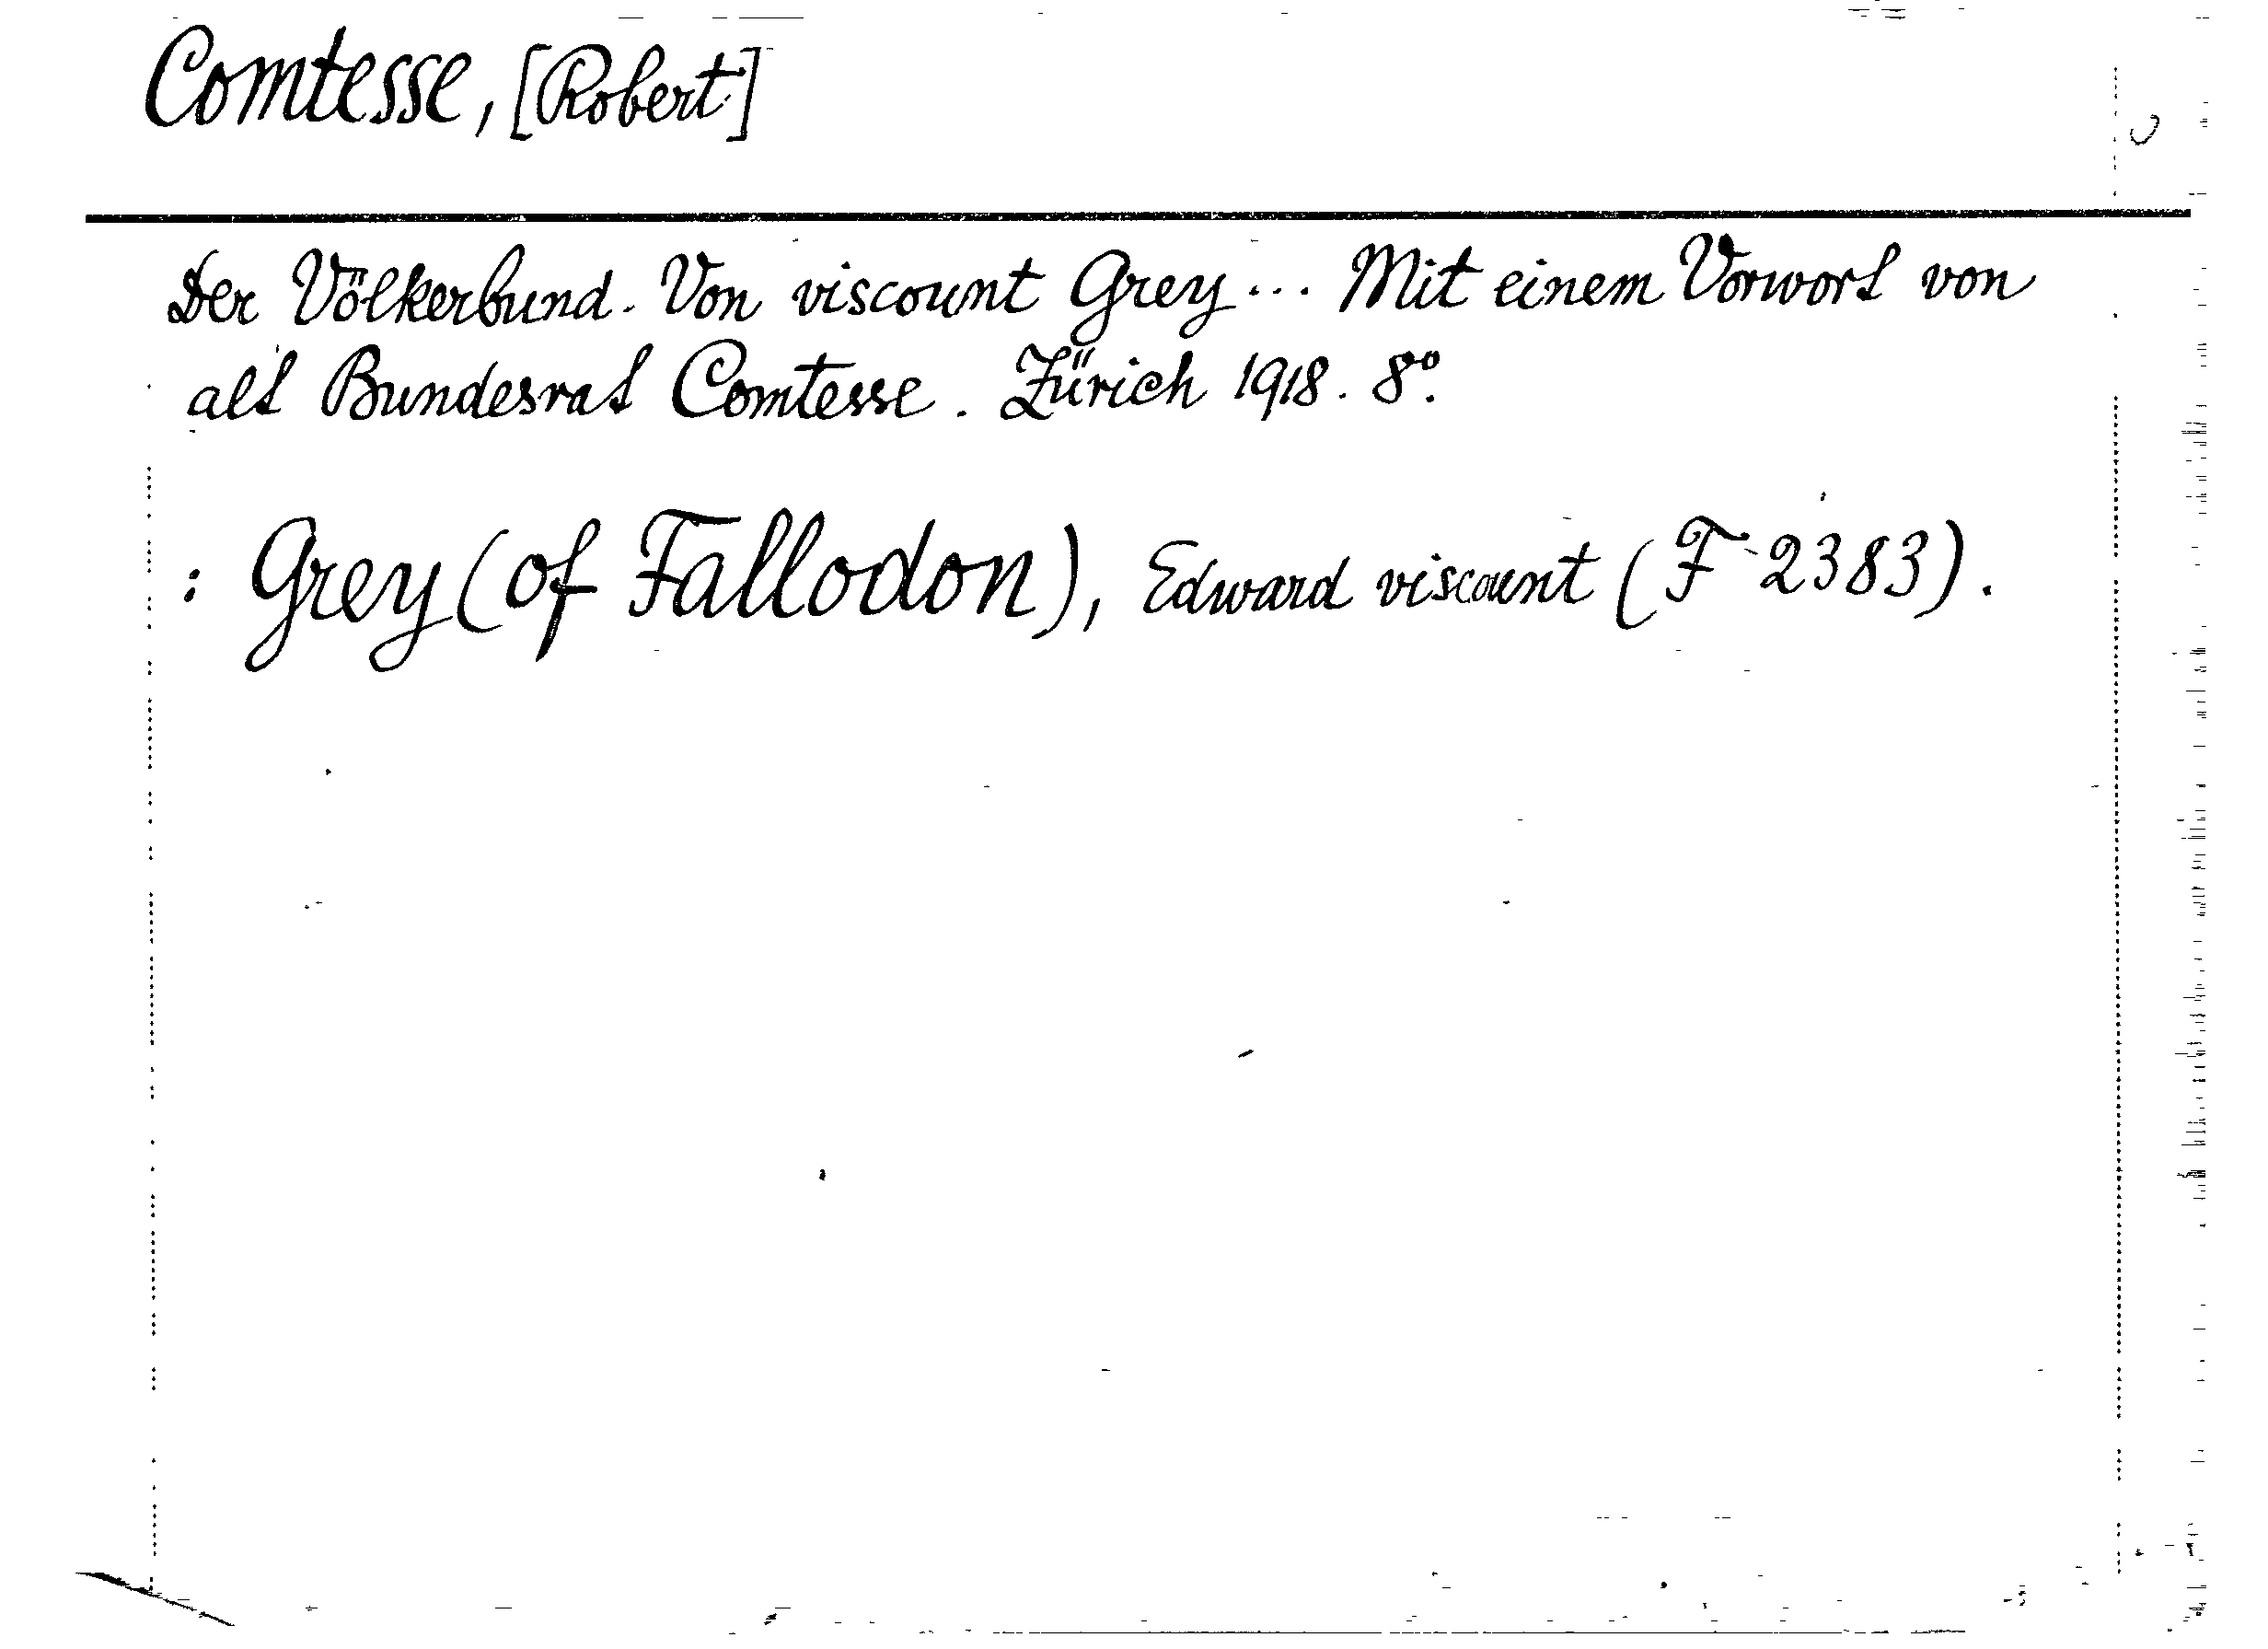 Comtesse, [Robert]
Der Völkerbund. Von viscount Grey... Mit einem Vorwort von
alt Bundesrat Comtesse. Zürich 1918. 8°.
: Grey (of Fallodon), Edward viscount (F 2383).